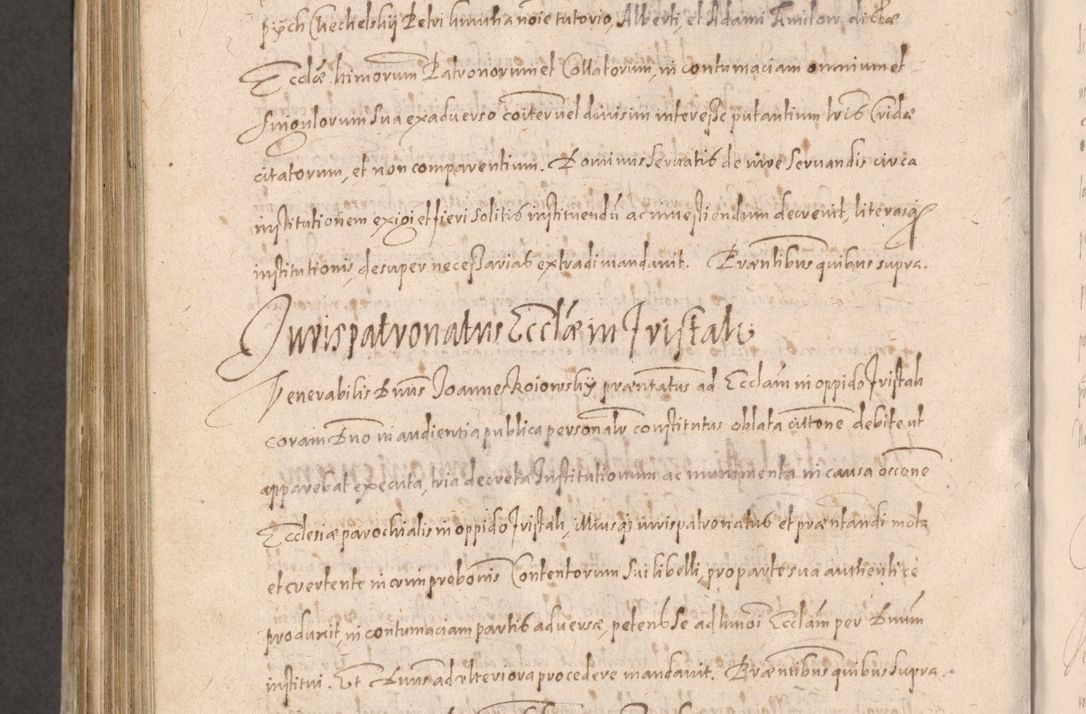 pych Chechelskij Petri huiusha noie tutorio, Alberti, et Adami Kmitow, dictae
Eccliae huimorum Patronorum et Collatorum, in contumaciam omnium et
singulorum sua ex aduerso coiter vel diuisim interesse putantium lris Cridae
citatorum, et non comparentium. Dominus seruatis de iure seruandis circa
institutionem exigi et fieri solitis instituendu ac inuestiendum decreuit, literasq
institutionis, desuper necessarias extradi mandauit. Praentibus quibus supra.
Jurispatronatus Eccliae in Jristah
Venerabilis Dnus Joannes Koiowskij praentatus ad Eccliam in oppido Jristah
coram Dno in audientia publica personalr constitutus oblata cittone debite ut
apparebat executa, tria decreta Institutionum ac munimenta in causa occone
Ecclesiae parochialis in oppido Jristah, illiusq iurispatronatus et praentandi mota
et vertente in crum probonis Contentorum sui libelli, pro parte sua authentice
produxit, in contumaciam partis aduersae, petens se ad himoi Eccliam per Dnum
institui. Et Dnus ad vlteriora procedere mandauit. Praentibus quibus supra.